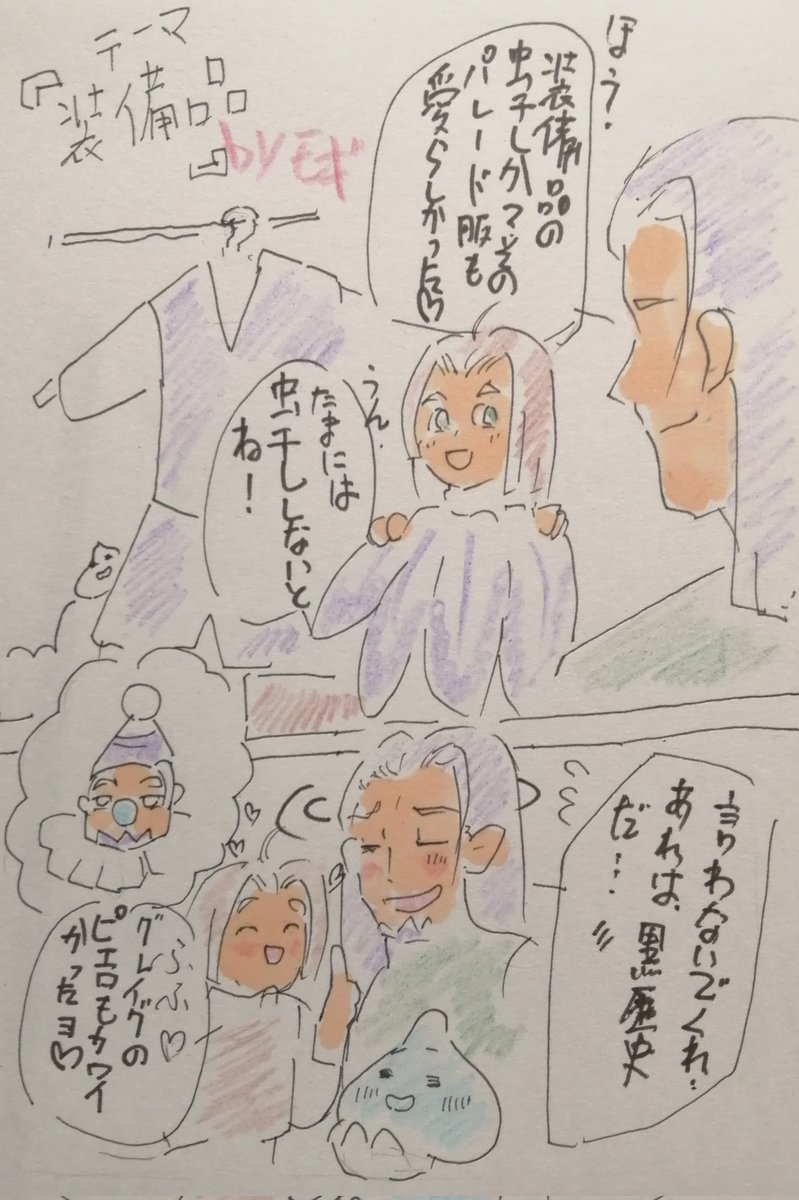 テーマ
『装備品』
byモギ
ほう・
装備品の
虫干しか マヤの
パレード服も
愛らしかったな♡
うん・
たまには
虫干ししないと
ね！
言わないでくれ・
あれは、黒歴史
だ・・・
ふふ♡
グレイグの
ピエロもカワイ
かったヨ♡